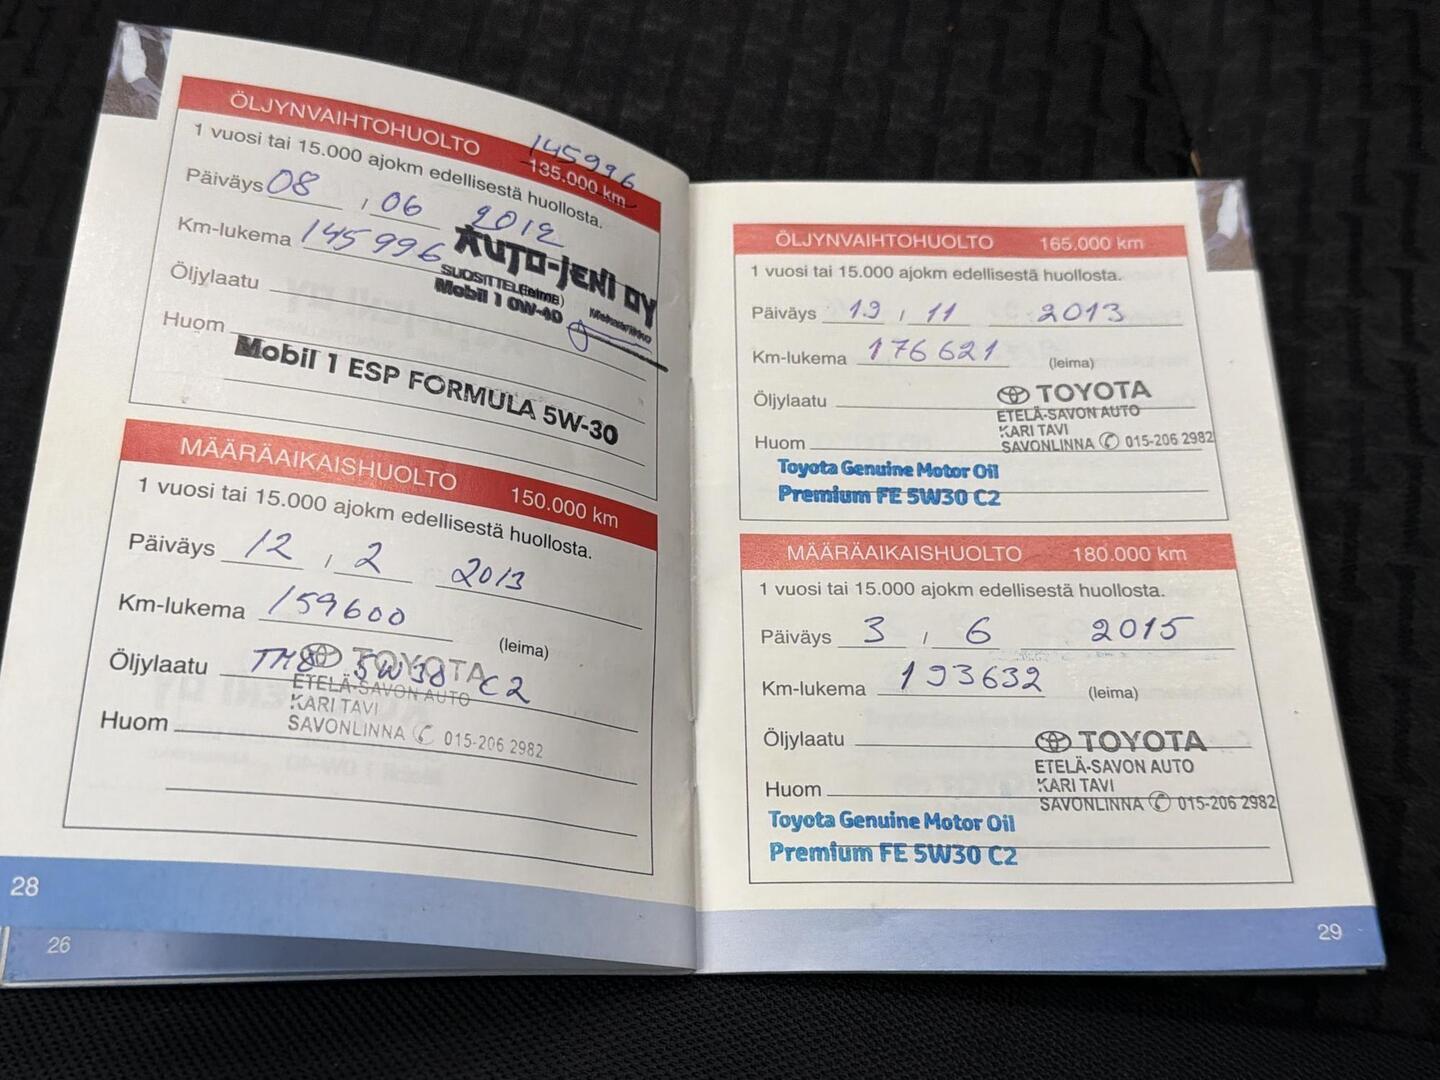 ÖLJYNVAIHTOHUOLTO 135.000 km
145996
1 vuosi tai 15.000 ajokm edellisestä huollosta.
Päiväys 08 , 06 2012
Km-lukema 145 996
AUTO-JENI OY
SUOSITTELEE (leima)
Mobil 1 0W-40
Öljylaatu
Huom
Mobil 1 ESP FORMULA 5W-30
MÄÄRÄAIKAISHUOLTO 150.000 km
1 vuosi tai 15.000 ajokm edellisestä huollosta.
Päiväys 12 , 2 2013
Km-lukema 159600
(leima)
Öljylaatu 5W30 C2
TOYOTA
ETELÄ-SAVON AUTO
KARI TAVI
SAVONLINNA 015-206 2982
Huom
28
26
ÖLJYNVAIHTOHUOLTO 165.000 km
1 vuosi tai 15.000 ajokm edellisestä huollosta.
Päiväys 19 , 11 2013
Km-lukema 176 621 (leima)
Öljylaatu
TOYOTA
ETELÄ-SAVON AUTO
KARI TAVI
SAVONLINNA 015-206 2982
Huom
Toyota Genuine Motor Oil
Premium FE 5W30 C2
MÄÄRÄAIKAISHUOLTO 180.000 km
1 vuosi tai 15.000 ajokm edellisestä huollosta.
Päiväys 3 , 6 2015
Km-lukema 193632 (leima)
Öljylaatu
TOYOTA
ETELÄ-SAVON AUTO
KARI TAVI
SAVONLINNA 015-206 2982
Huom
Toyota Genuine Motor Oil
Premium FE 5W30 C2
29